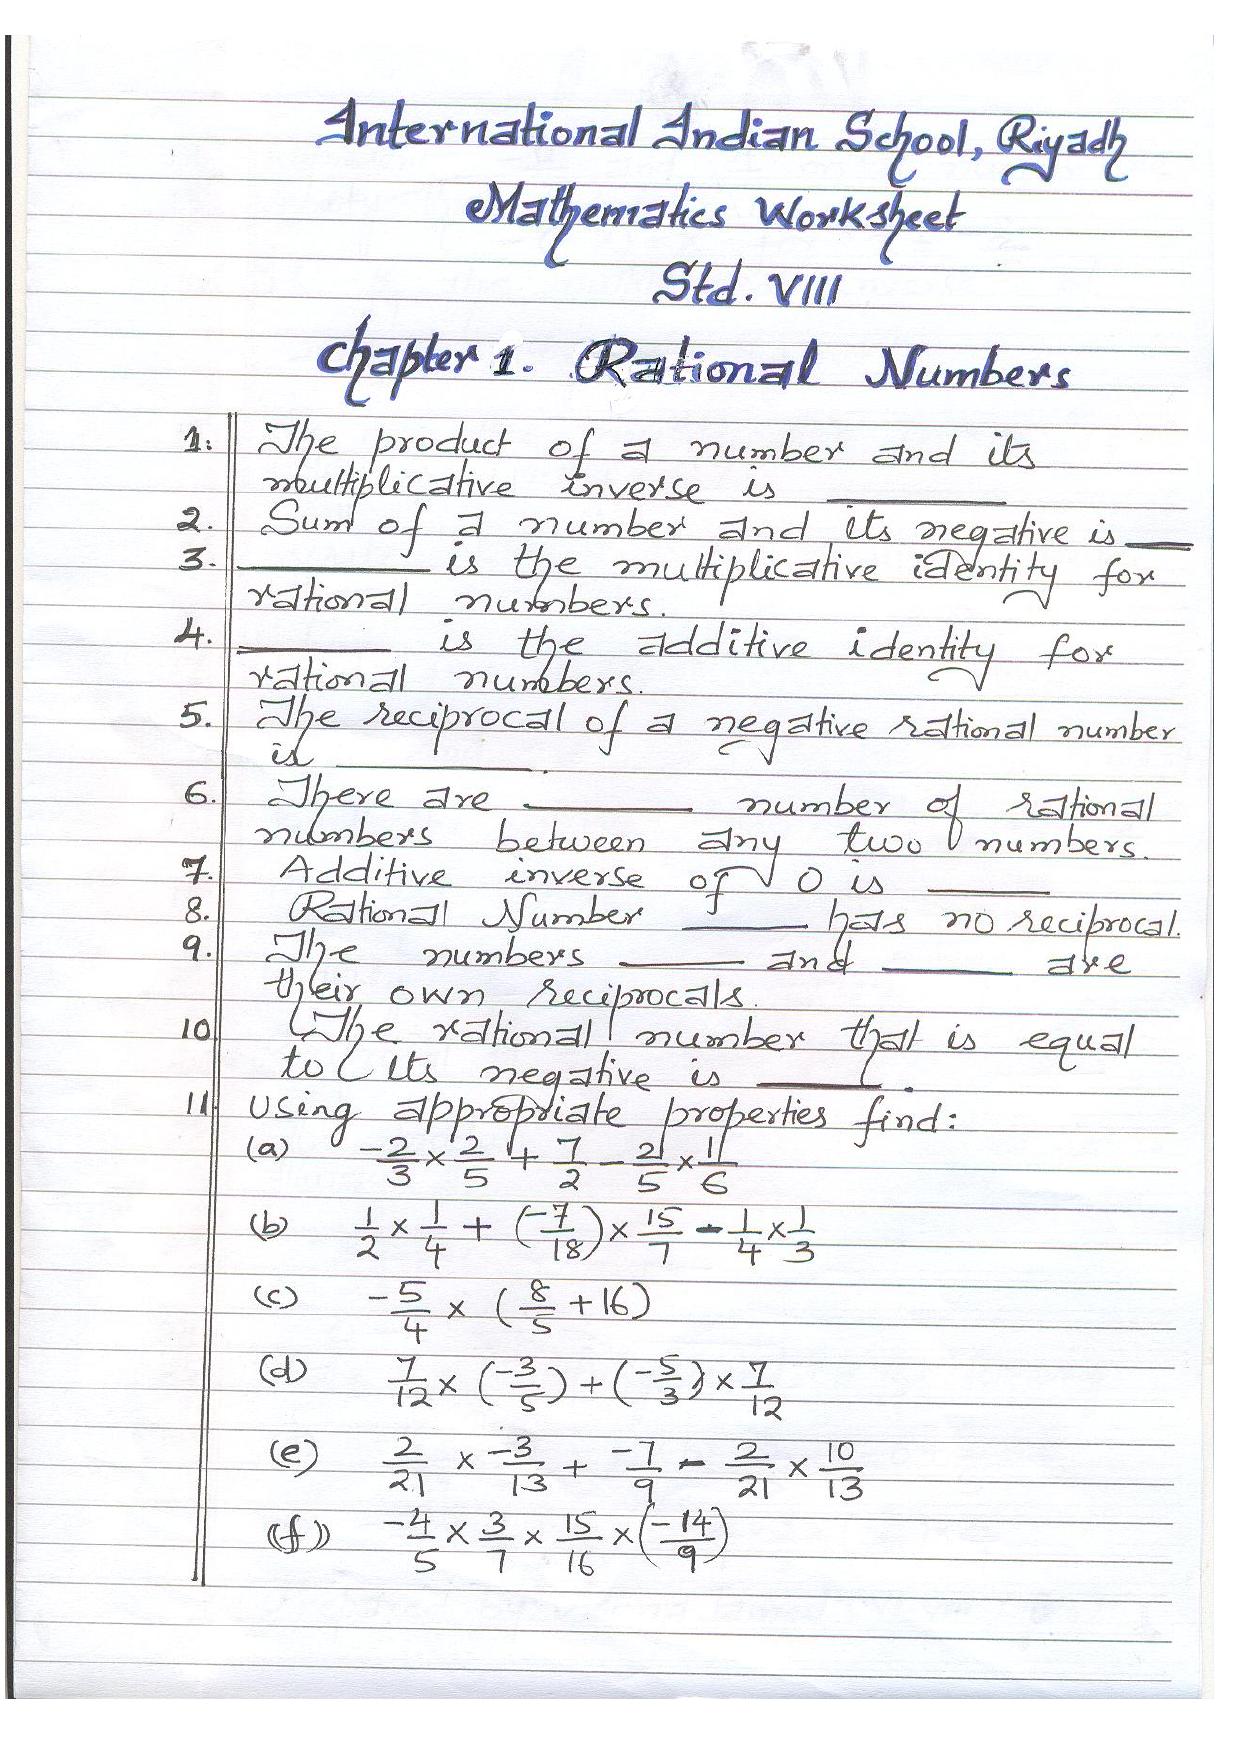 International Indian School, Riyadh
Mathematics Worksheet
Std. VIII
Chapter 1. Rational Numbers
1. The product of a number and its
multiplicative inverse is ________
2. Sum of a number and its negative is ___
3. ________ is the multiplicative identity for
rational numbers.
4. ________ is the additive identity for
rational numbers.
5. The reciprocal of a negative rational number
is ________.
6. There are ________ number of rational
numbers between any two numbers.
7. Additive inverse of 0 is ______
8. Rational Number ______ has no reciprocal.
9. The numbers ______ and ______ are
their own reciprocals.
10 The rational number that is equal
to its negative is ______.
11 Using appropriate properties find:
(a) -2/3 × 2/5 + 7/2 - 2/5 × 1/6
(b) 1/2 × 1/4 + (-7/18) × 15/7 - 1/4 × 1/3
(c) -5/4 × (8/5 + 16)
(d) 7/12 × (-3/5) + (-5/3) × 7/12
(e) 2/21 × -3/13 + -7/9 - 2/21 × 10/13
(f) -4/5 × 3/7 × 15/16 × (-14/9)